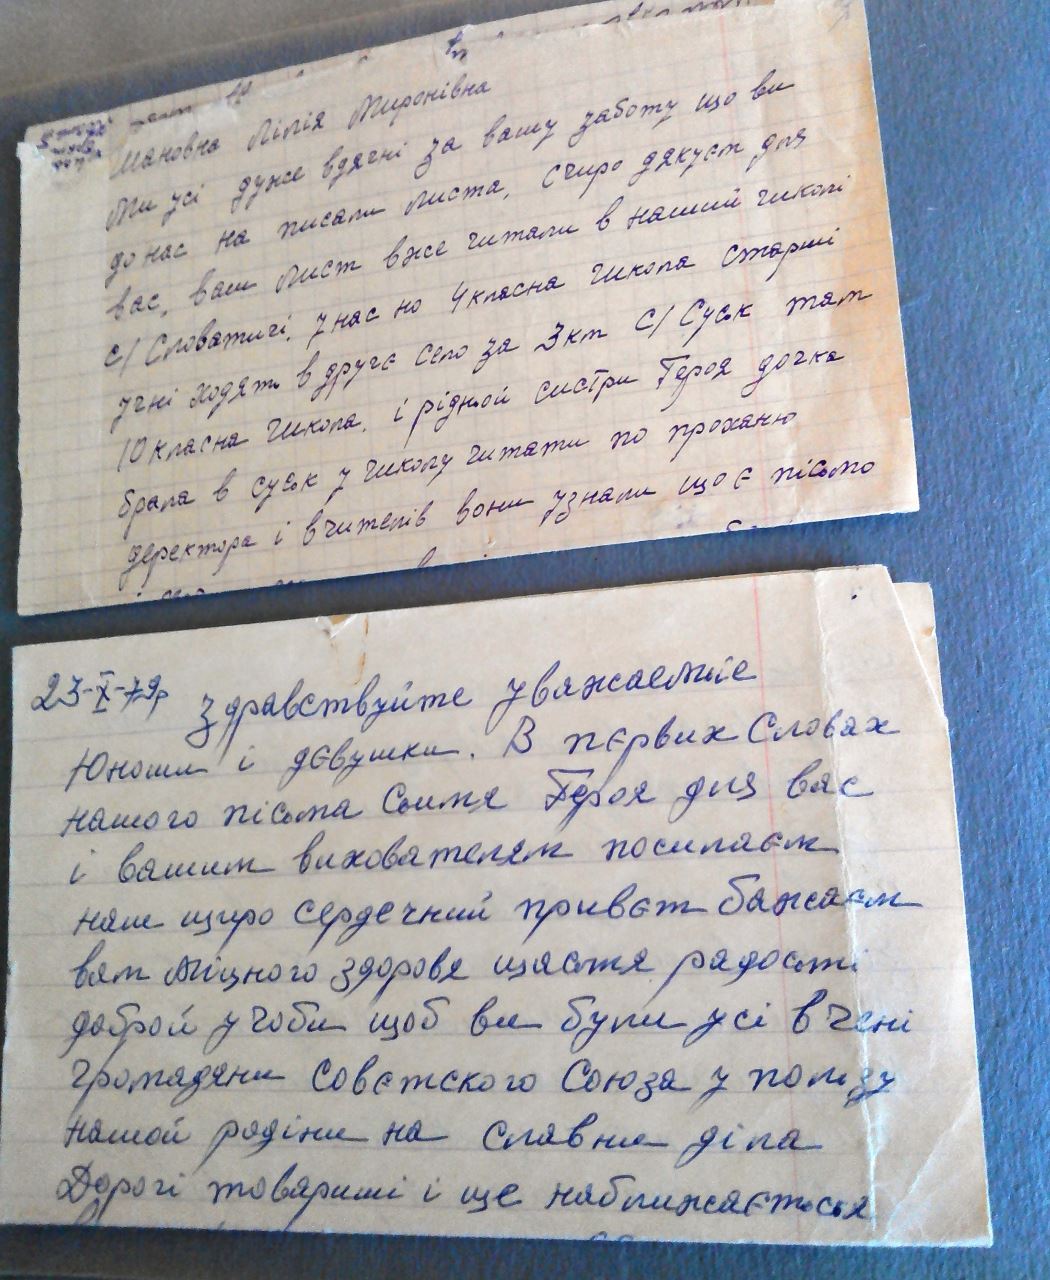 Шановна Лілія Миронівна
Ми усі дуже вдячні за вашу заботу що ви
до нас на писали листа, счиро дякуєм для
вас, ваш лист вже читали в нашій школі
с/Словатичі, у нас но 4 класна школа старші
учні ходять в другє село за 3 км с/Суськ там
10 класна школа, і рідной систри Героя дочка
брала в суськ у школу читати по проханю
деректора і вчителів вони узнали що є пісьмо
23-X-79р Здравствуйте уважаеміє
Юноши і дєвушки. В пєрвих Словах
нашого пісьма Сымя Героя для вас
і вашим вихователям посилаєм
наш щиро сердечний привєт бажаєм
вам міцного здоровя щастя радості
доброй учоби щоб ви були усі вчені
громадяни Совєтского Союза у ползу
нашой родіни на славни діла
Дорогі товариші і ще наближаєтьсья